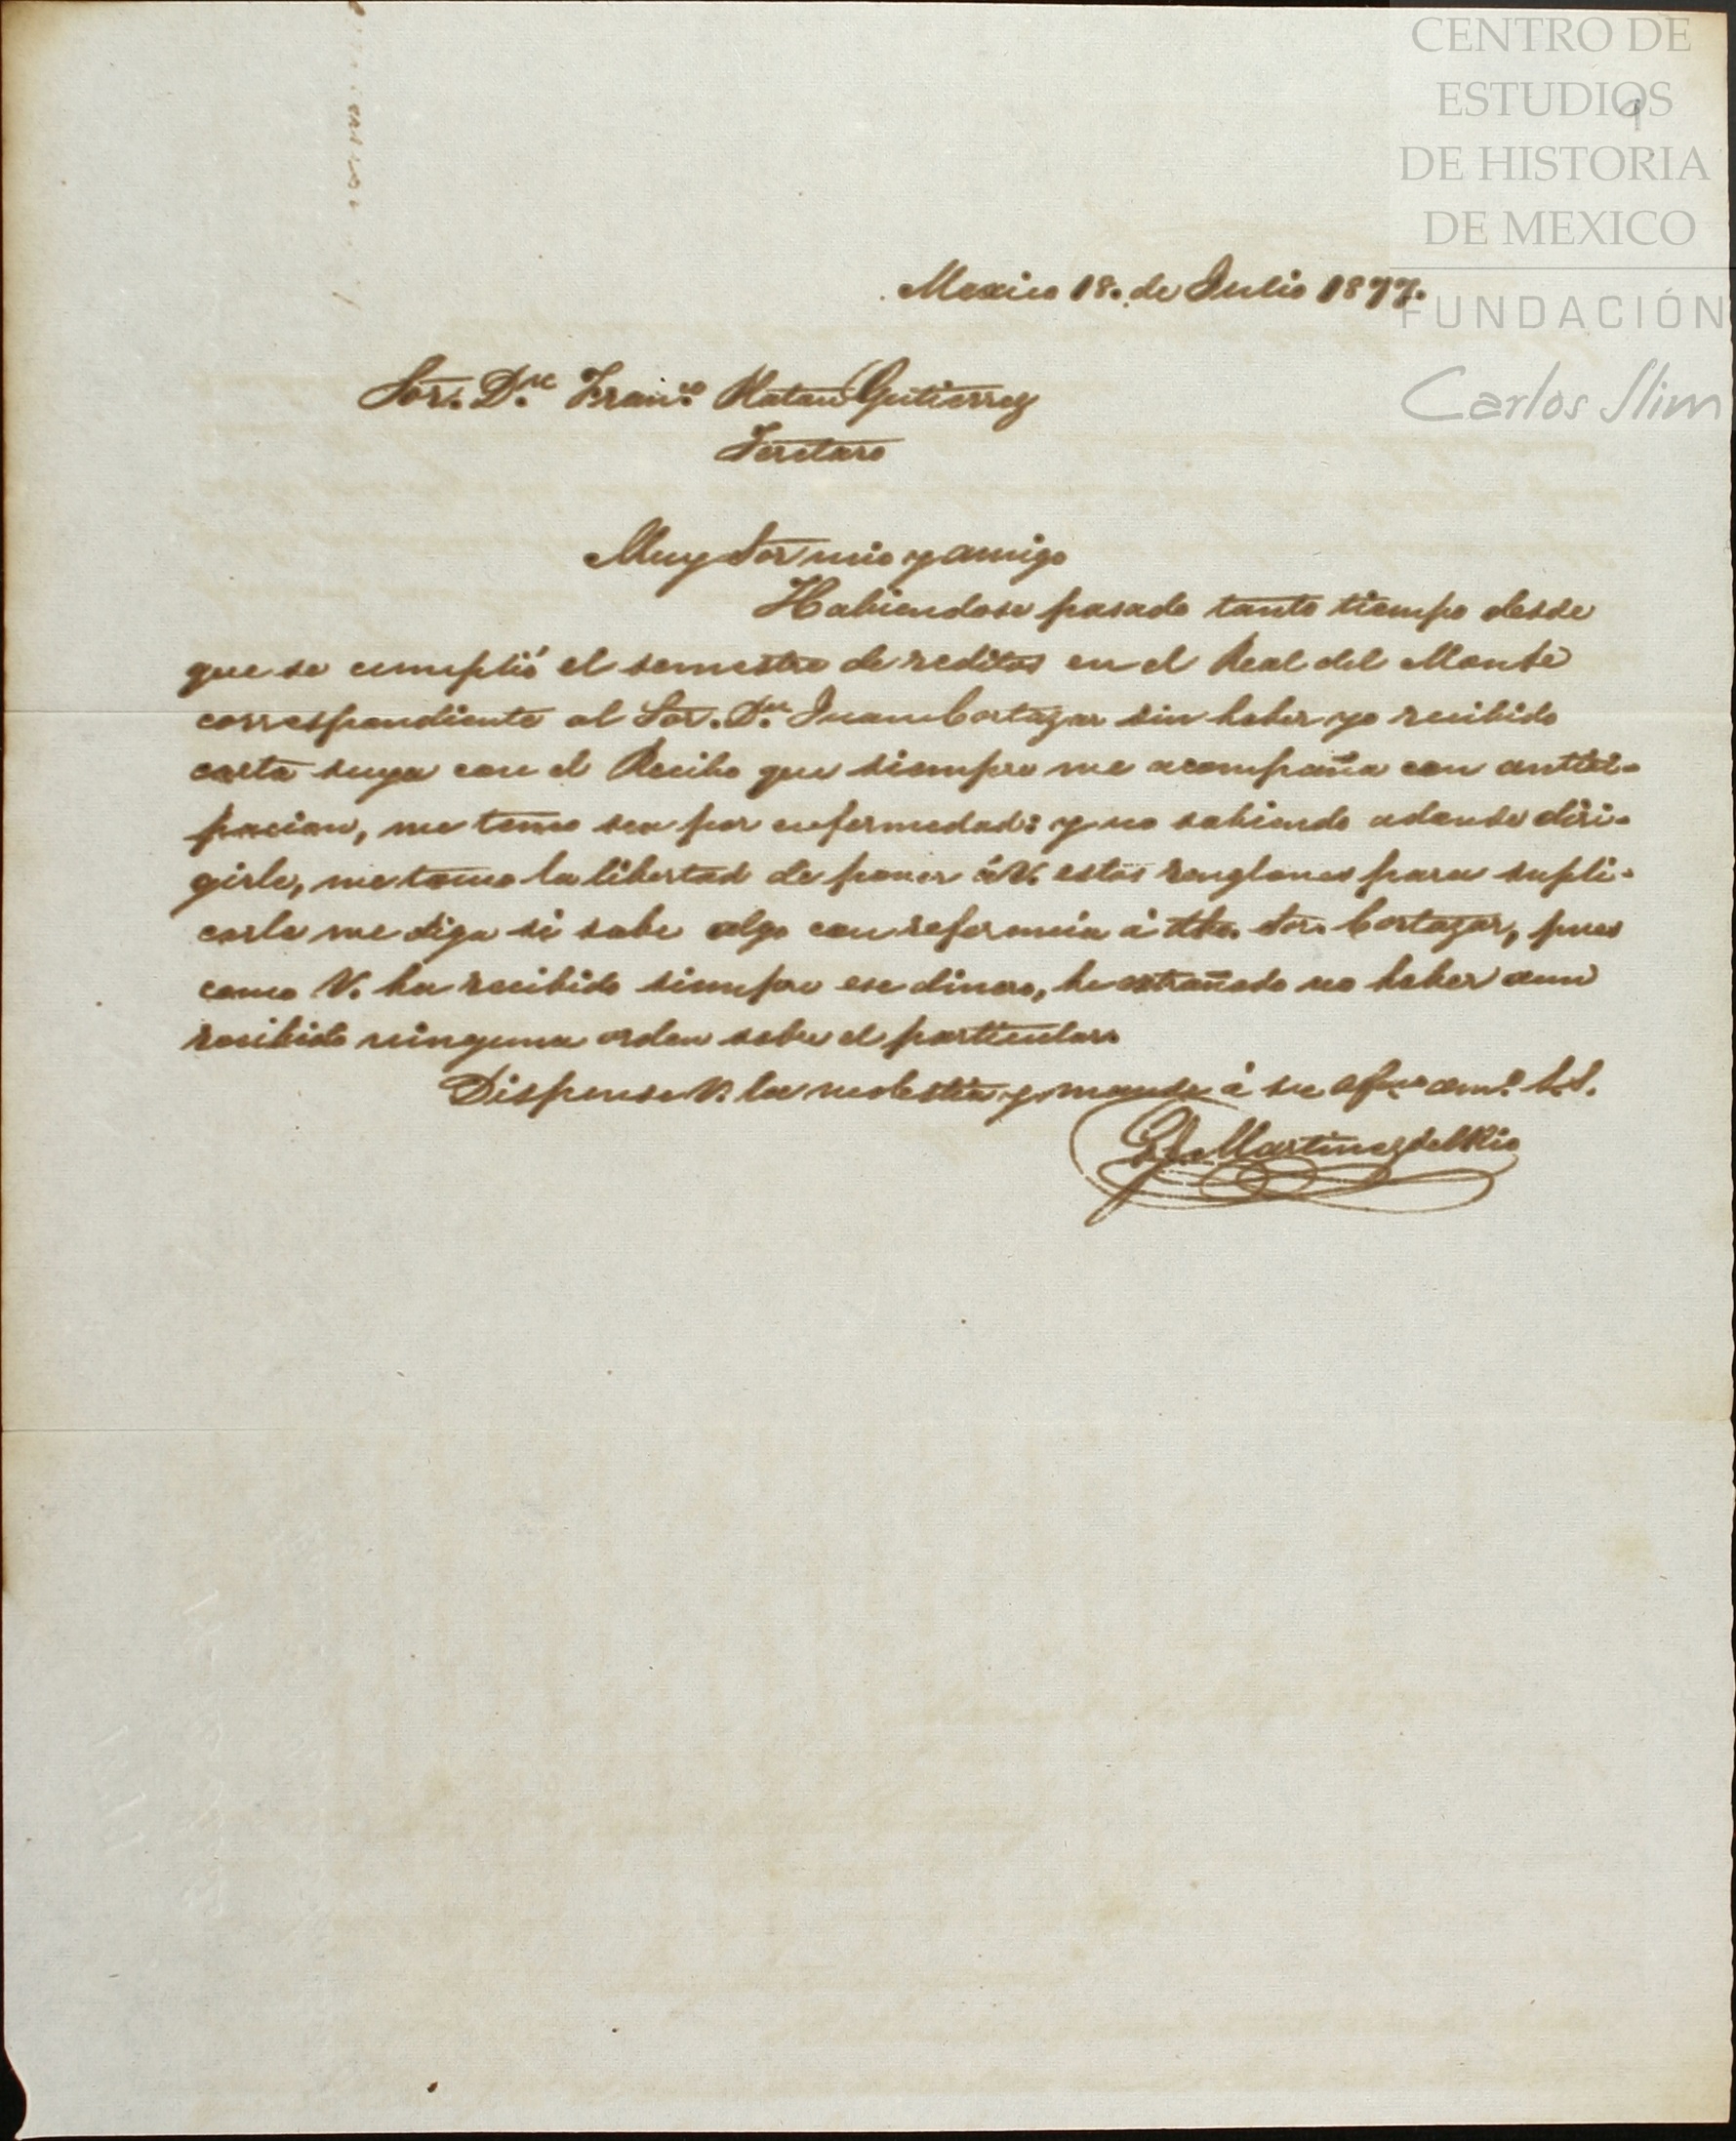 CENTRO DE
ESTUDIOS
DE HISTORIA
DE MEXICO
FUNDACIÓN
Carlos Slim
Mexico 18. de Julio 1877.
Sor. Dn. Franco. Gutierrez
Muy Sor mio y amigo
Habiendose pasado tanto tiempo desde
que se cumplió el semestre de reditos en el Real del Monte
correspondiente al Sor. Dn. Juan Cortazar sin haber yo recibido
carta suya con el Recibo que siempre me acompaña con antici-
pacion, me temo sea por enfermedad: y no sabiendo adonde diri-
girle, me tomo la libertad de poner á V. estos renglones para supli-
carle me diga si sabe algo con referencia á dho. Sor. Cortazar, pues
como V. ha recibido siempre ese dinero, he extrañado no haber aun
recibido ninguna orden sobre el particular.
Dispense V. la molestia y mande á su afmo. amo. S.S.
Martinez del Rio